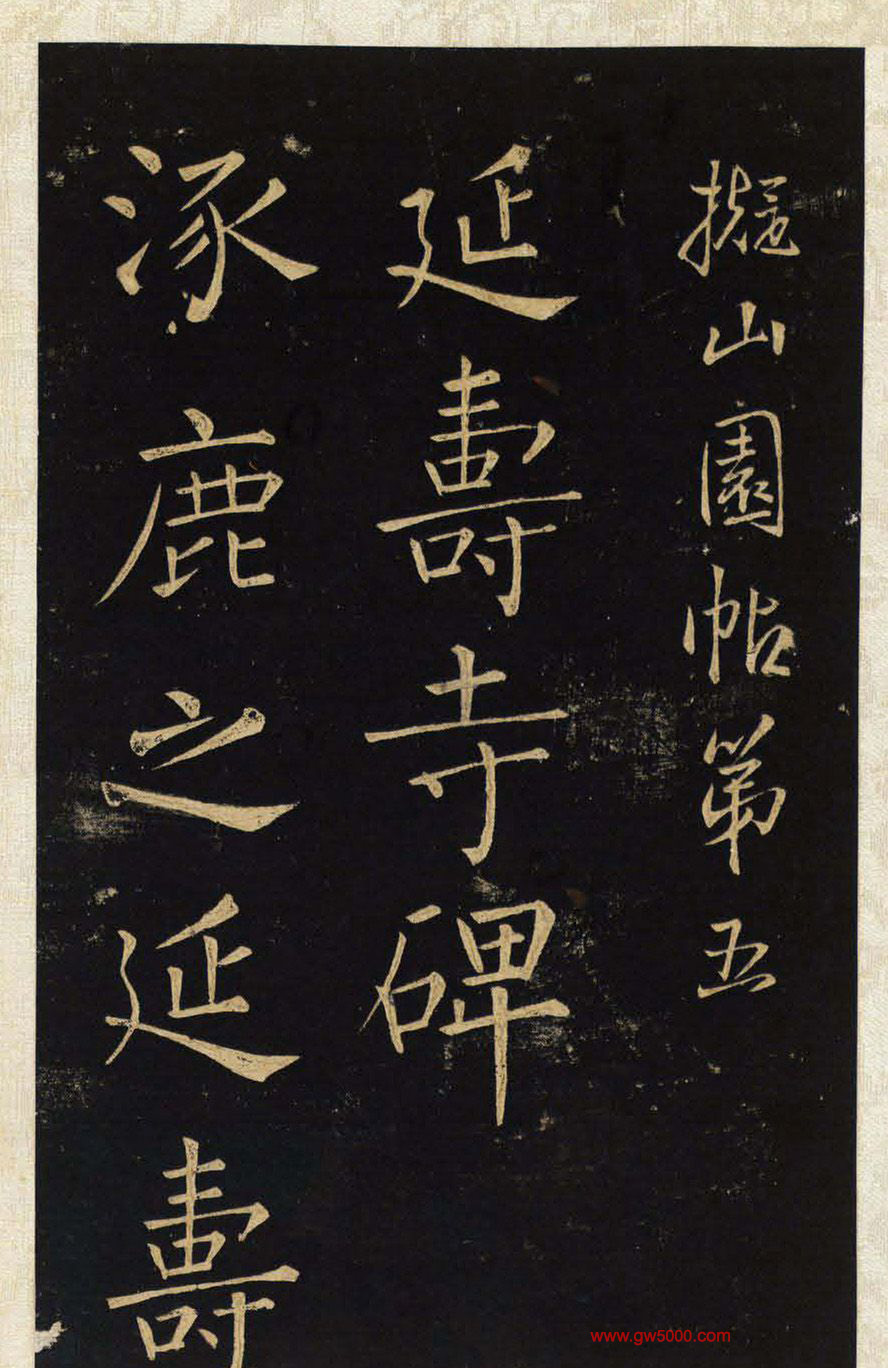 擬山園帖第五
延壽寺碑
涿鹿之延壽
www.gw5000.com